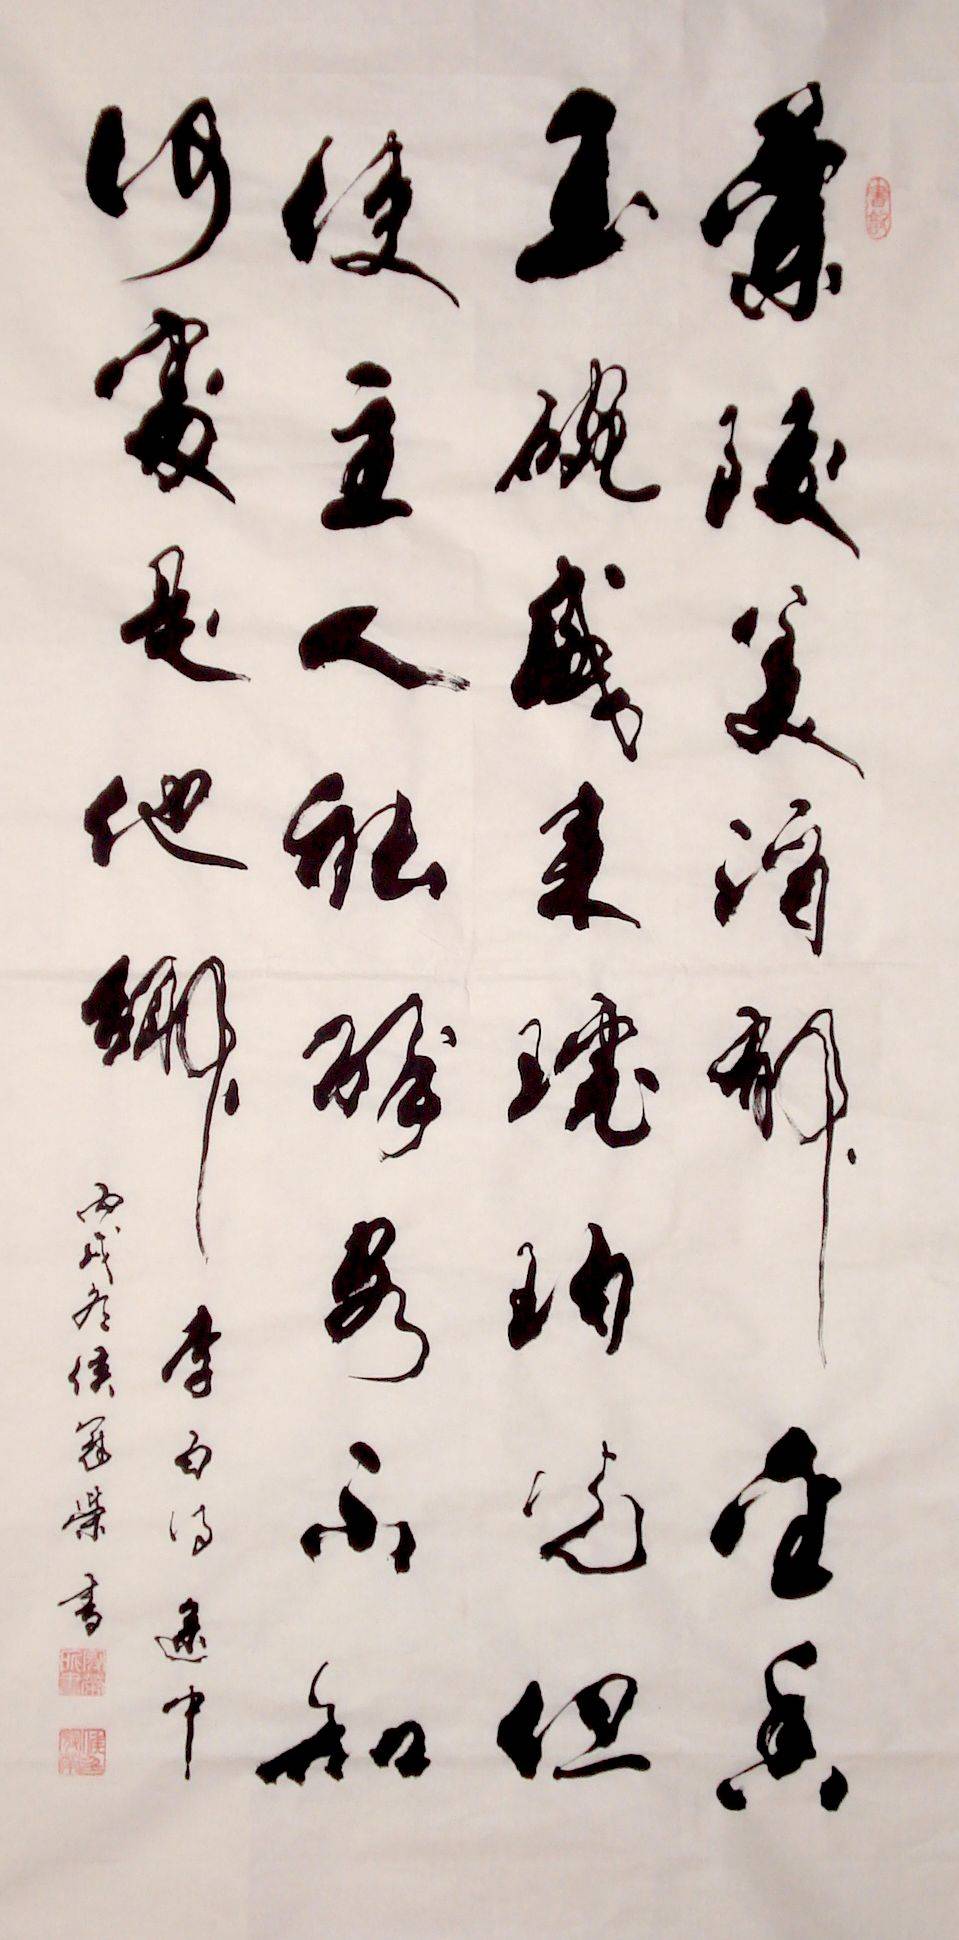 蘭陵美酒郁金香
玉碗盛来琥珀光但
使主人能醉客不知
何處是他鄉 李白詩 中
丙戌冬侯冠榮書